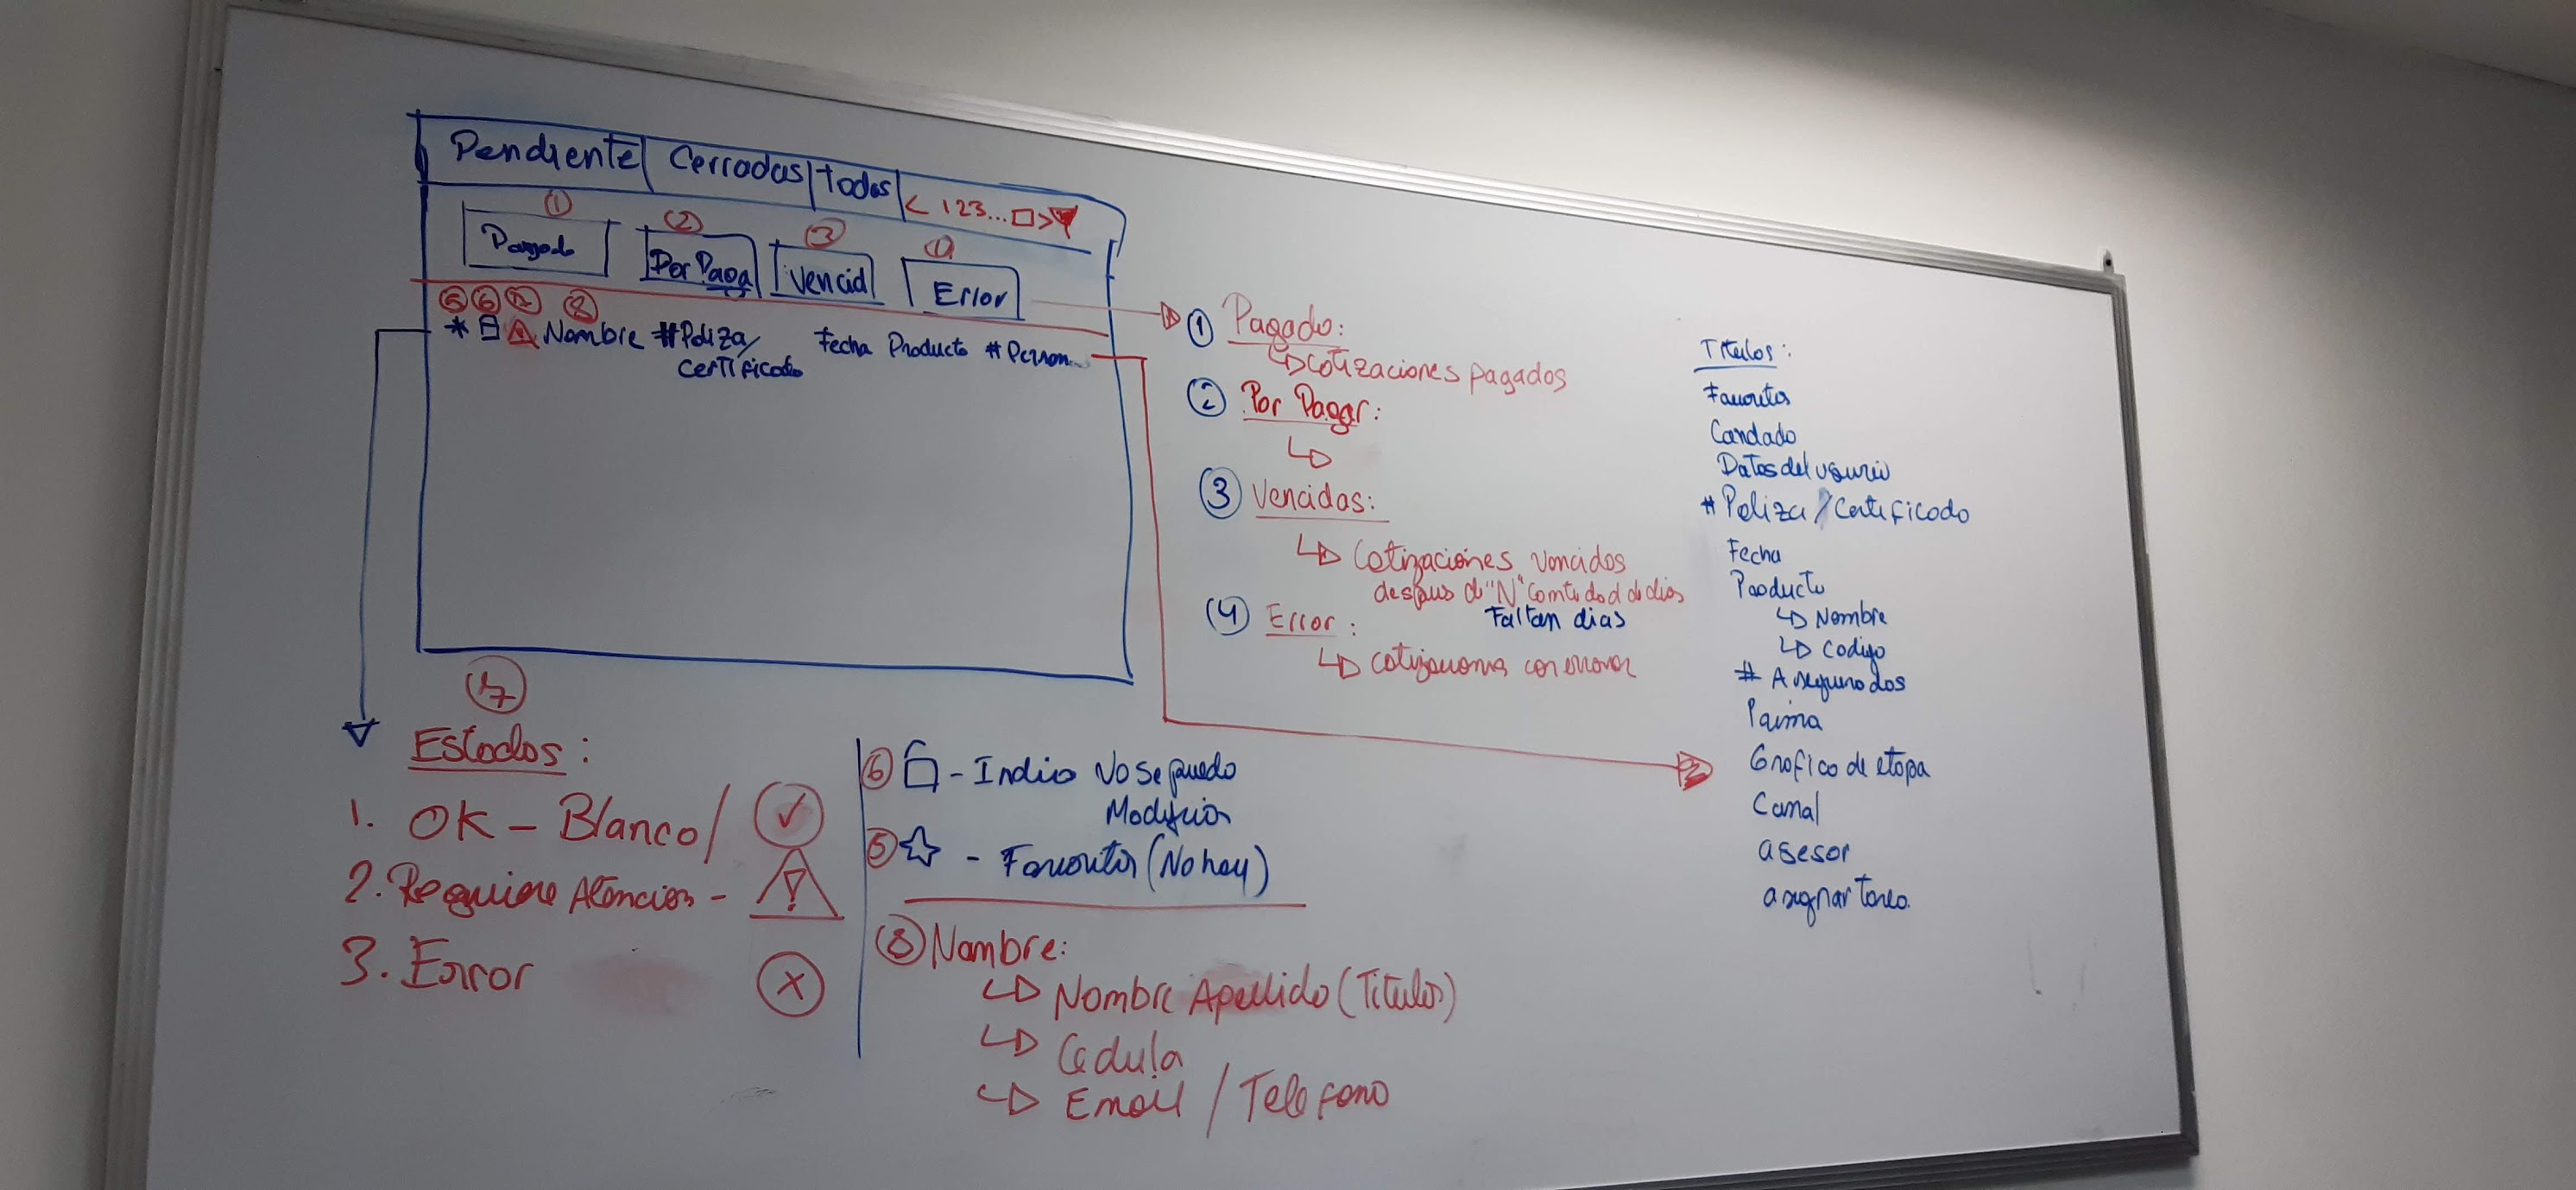 Pendiente Cerradas todas < 123... >
1 2 3
Pagado Por Paga Vencid Error
5 6 8
* Nombre #Poliza/ Fecha Producto #Person
Certificado
1 Pagado:
Cotizaciones pagados
2 Por Pagar:
3 Vencidas:
Cotizaciones Vencidos
despues de "N" Cantidad de dias
Faltan dias
(4) Error:
Cotizaciones con error
Titulos:
Favoritos
Candado
Datos del usuario
# Poliza / Certificado
Fecha
Producto
Nombre
Codigo
# Asegurados
Prima
Grafico de etapa
Canal
asesor
asignar tarea
7
Estados:
1. OK - Blanco/ ✓
2. Requiere Atencion - !
3. Error X
6 - Indica No se puede
Modificar
5 - Favoritos (No hay)
8 Nombre:
Nombre Apellido (Titulos)
Cedula
Email / Telefono